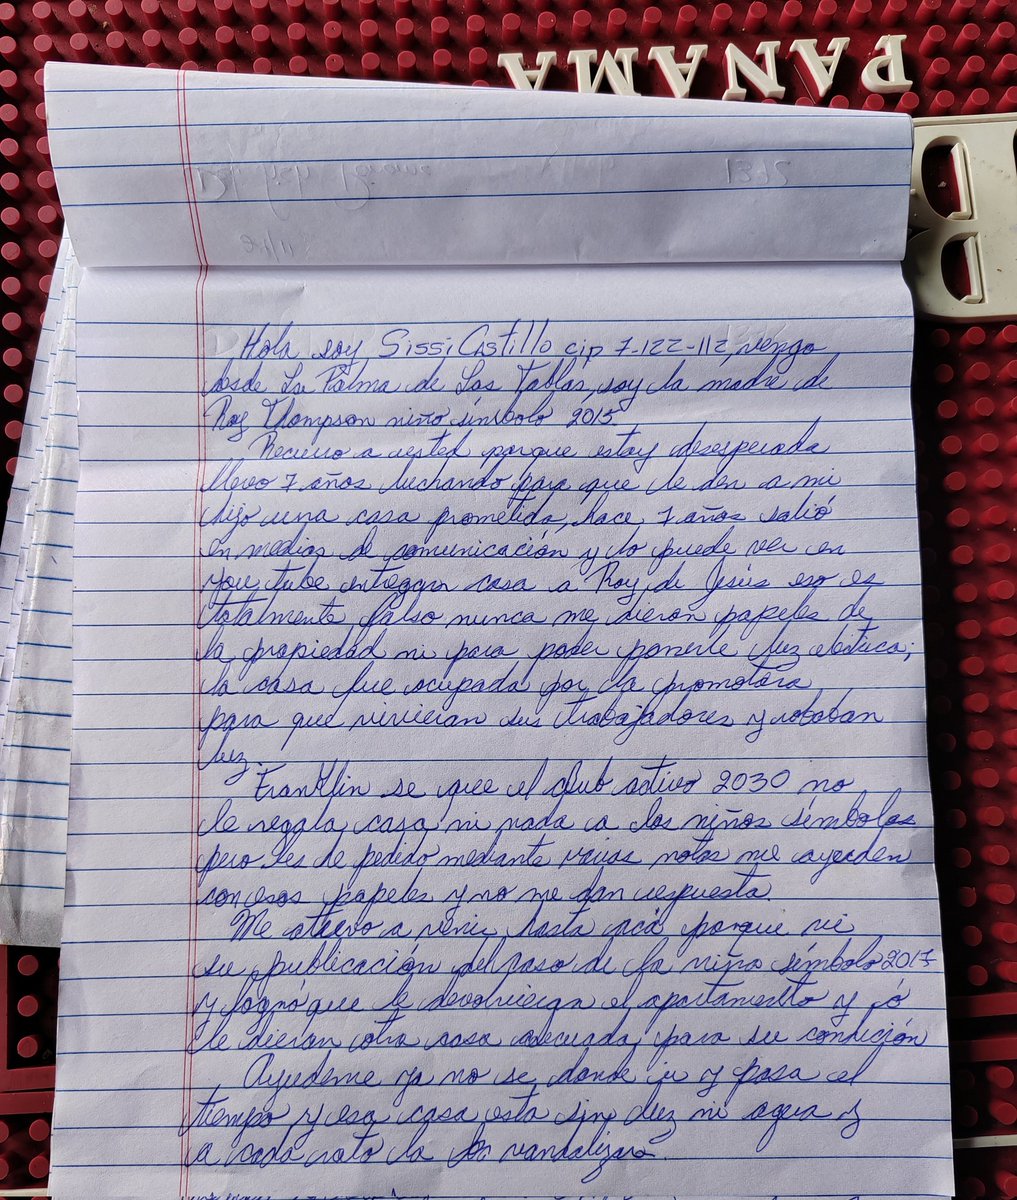 PANAMA
Hola soy Sissi Castillo cip 7-122-112, vengo
desde La Palma de Las Tablas, soy la madre de
Roy Thompson niño símbolo 2015.
Recurro a usted porque estoy desesperada
llevo 7 años luchando para que le den a mi
hijo una casa prometida, hace 7 años salió
en medios de comunicación y lo puede ver en
you tube entregan casa a Roy de Jesús eso es
totalmente falso nunca me dieron papeles de
la propiedad ni para poder ponerle luz eletrica;
la casa fue ocupada por la promotora
para que vivieran sus trabajadores y robaban
luz.
Franklin se que el club activo 2030 no
le regala casa ni nada a los niños símbolos
pero les he pedido mediante varias notas me ayuden
con esos papeles y no me dan respuesta.
Me atrevo a venir hasta acá porque vi
su publicación del caso de la niña símbolo 2017
y logró que le devolvieran el apartamento y
le dieran otra casa adecuada para su condición
Ayudeme ya no se donde ir y pasa el
tiempo y esa casa esta sin luz ni agua y
a cada rato la vandalizan.